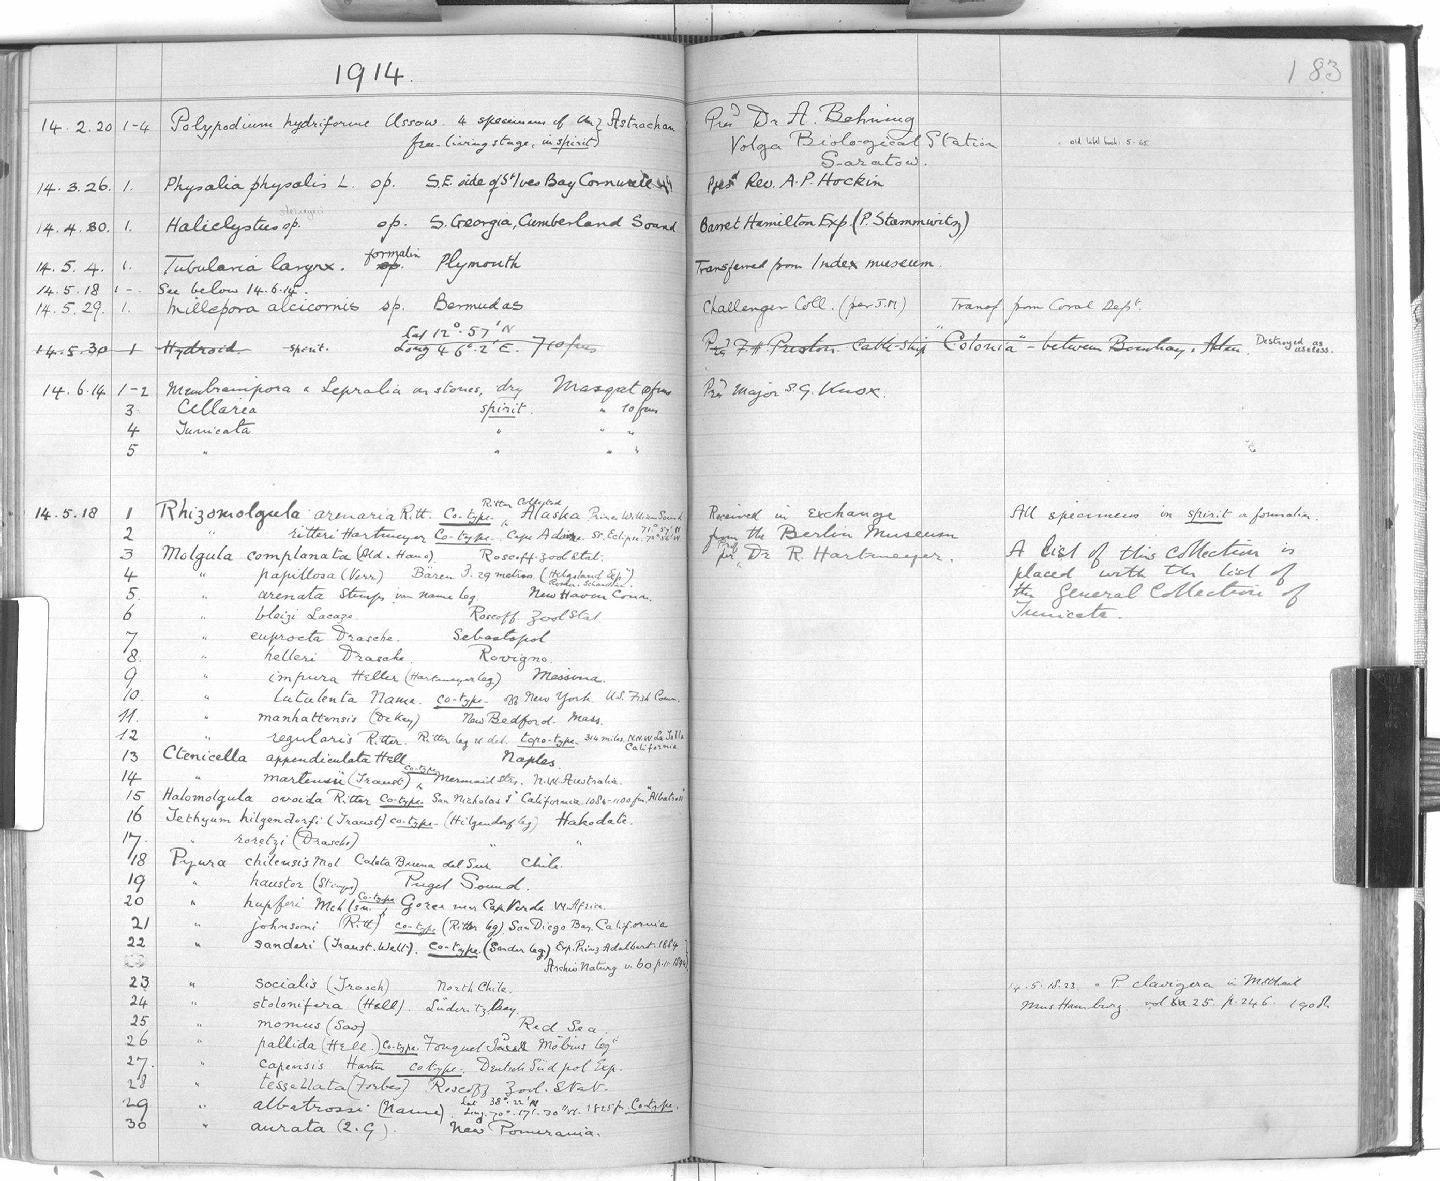 1914.
183
14.2.20 1-4 Polypodium hydriforme Ussow. 4 specimens of Astrachan Pres^d Dr A. Behning
free-living stage, in spirit Volga Biological Station
Saratow.
14.3.26. 1. Physalia physalis L. sp. S.E. side of St Ives Bay Cornwall Pres^d Rev. A.P. Hockin
14.4.30. 1. Haliclystus sp. sp. S. Georgia, Cumberland Sound Barret Hamilton Exp (P. Stammwitz)
formalin
14.5.4. 1. Tubularia larynx. sp. Plymouth Transferred from Index museum.
14.5.18 1-. See below 14.6.14.
14.5.29. 1. Millepora alcicornis sp. Bermudas Challenger Coll. (per J.M) Transf. from Coral Dept.
Lat 12°.57' N
14.5.30 1 Hydroid. spirit. Long 46°.2' E. 710 fms Pres^d F.H. Preston Cable-Ship "Colonia" - between Bombay & Aden. Destroyed as useless.
14.6.14 1-2 Membranipora & Lepralia on stones, dry Masqat fms Pres^d Major S.G. Knox.
3 Cellarea spirit. " 10 fms
4 Tunicata " " "
5 " " " "
Ritter Collected
14.5.18 1 Rhizomolgula arenaria Ritt. Co-type. Alaska Prince William Sound Received in exchange All specimens in spirit or formalin.
2 " ritteri Hartmeyer Co-type. Cape Adaire St. Eclipse. 71°.57' N from the Berlin Museum
3 Molgula complanata (Ald. Hanc) Roscoff Zool Stat. per Prof. Dr R. Hartmeyer. A list of this collection is
4 " papillosa (Verr) Bären I. 29 metres (Helgoland Exp^n) placed with the list of
Römer. Schaudinn.
5. " arenata Stimps. van Name leg. New Haven Conn. the General Collection of
6 " bleizi Lacaze Roscoff Zool Stat Tunicata.
7 " euprocta Drasche. Sebastopol
8. " helleri Drasche. Rovigno.
9 " impura Heller (Hartmeyer leg) Messina.
10. " lutulenta Name. co-type. off New York. U.S. Fish Comm.
11. " manhattensis (De Kay) New Bedford. Mass.
12 " regularis Ritter. Ritter leg et det. topo-type. 3¼ miles. N.N.W La Jolla
California
13 Ctenicella appendiculata Hell Naples.
14 " martensii (Traust) co-type Mermaid Strs. N.W. Australia.
15 Halomolgula ovoida Ritter Co-type San Nicholas I^d California 1084-1100 fm. "Albatross"
16 Tethyum hilgendorfi (Traust) co-type (Hilgendorf leg) Hakodate.
17. " roretzi (Drasche) " "
18 Pyura chilensis Mol Caleta Buena del Sur Chile.
19 " haustor (Stimps) Puget Sound.
20 " hupferi Mchlsn. Co-type Gorea near Cap Verde W. Africa.
21 " johnsoni (Ritt) co-type (Ritter leg) San Diego Bay. California
22 " sanderi (Traust. Welt). Co-type. (Sander leg) Exp. Prinz Adalbert. 1884
Archiv Naturg v. 60 p. 11. 1894
23 " socialis (Trasch) North Chile. 14.5.18.23. = P. clavigera in Mitteil
24 " stolonifera (Hell). Lüderitz Bay. Mus Hamburg vol 25. p. 246. 1908
25 " momus (Sav) Red Sea.
26 " pallida (Hell.) Co-type Fouquet I^s Möbius leg^t
27. " capensis Hartm co-type. Deutsch Süd pol Exp.
28 " tessellata (Forbes) Roscoff Zool. Stat.
29 " albatrossi (Name) Lat 38°.22' N Long. 70°.17'.30" W. 1825 f. Co-type.
30 " aurata (2.G). New Pomerania.